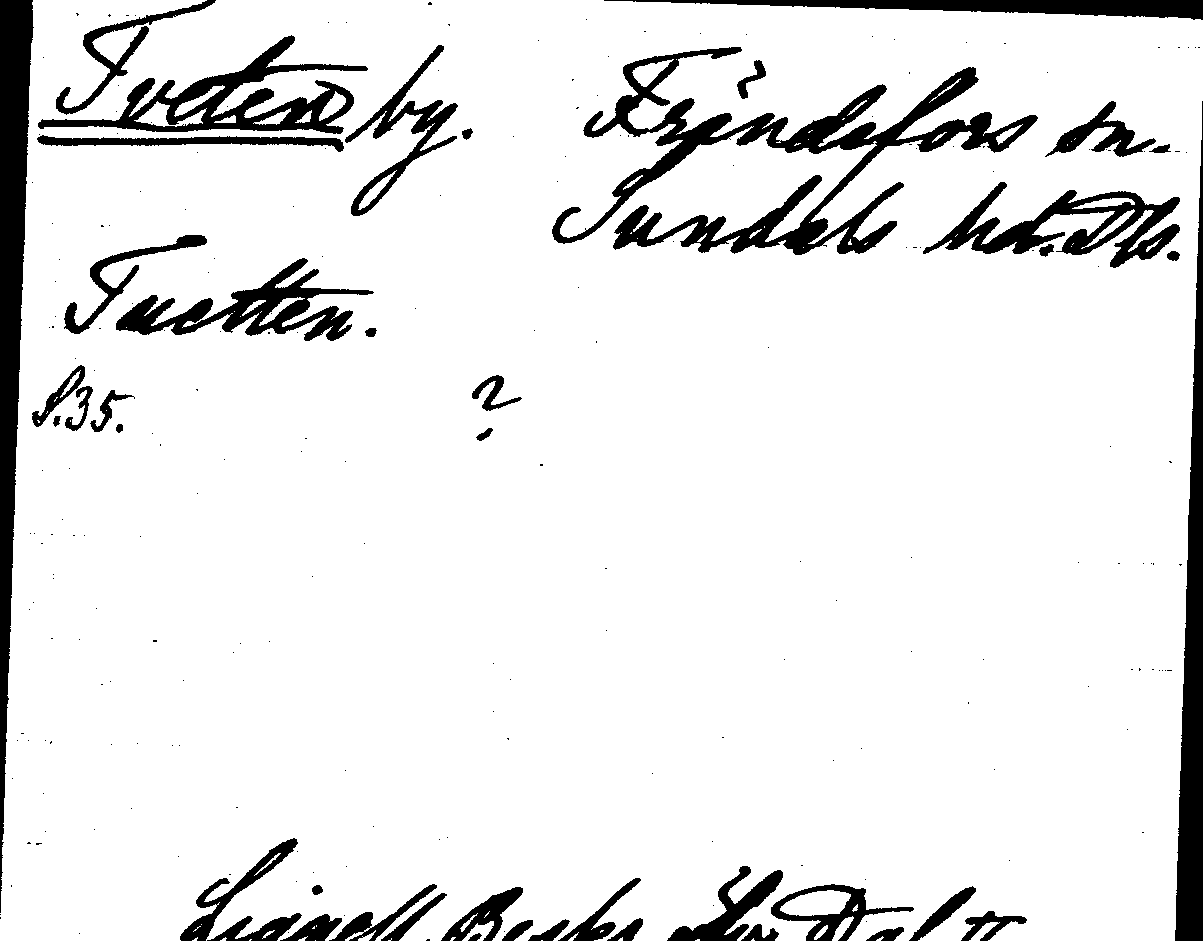 Tveten by. Frändefors sn.
Sundals hd. Dls.
Tuetten.
S.35. ?
Lignell, Beskr. öfv. Dal II